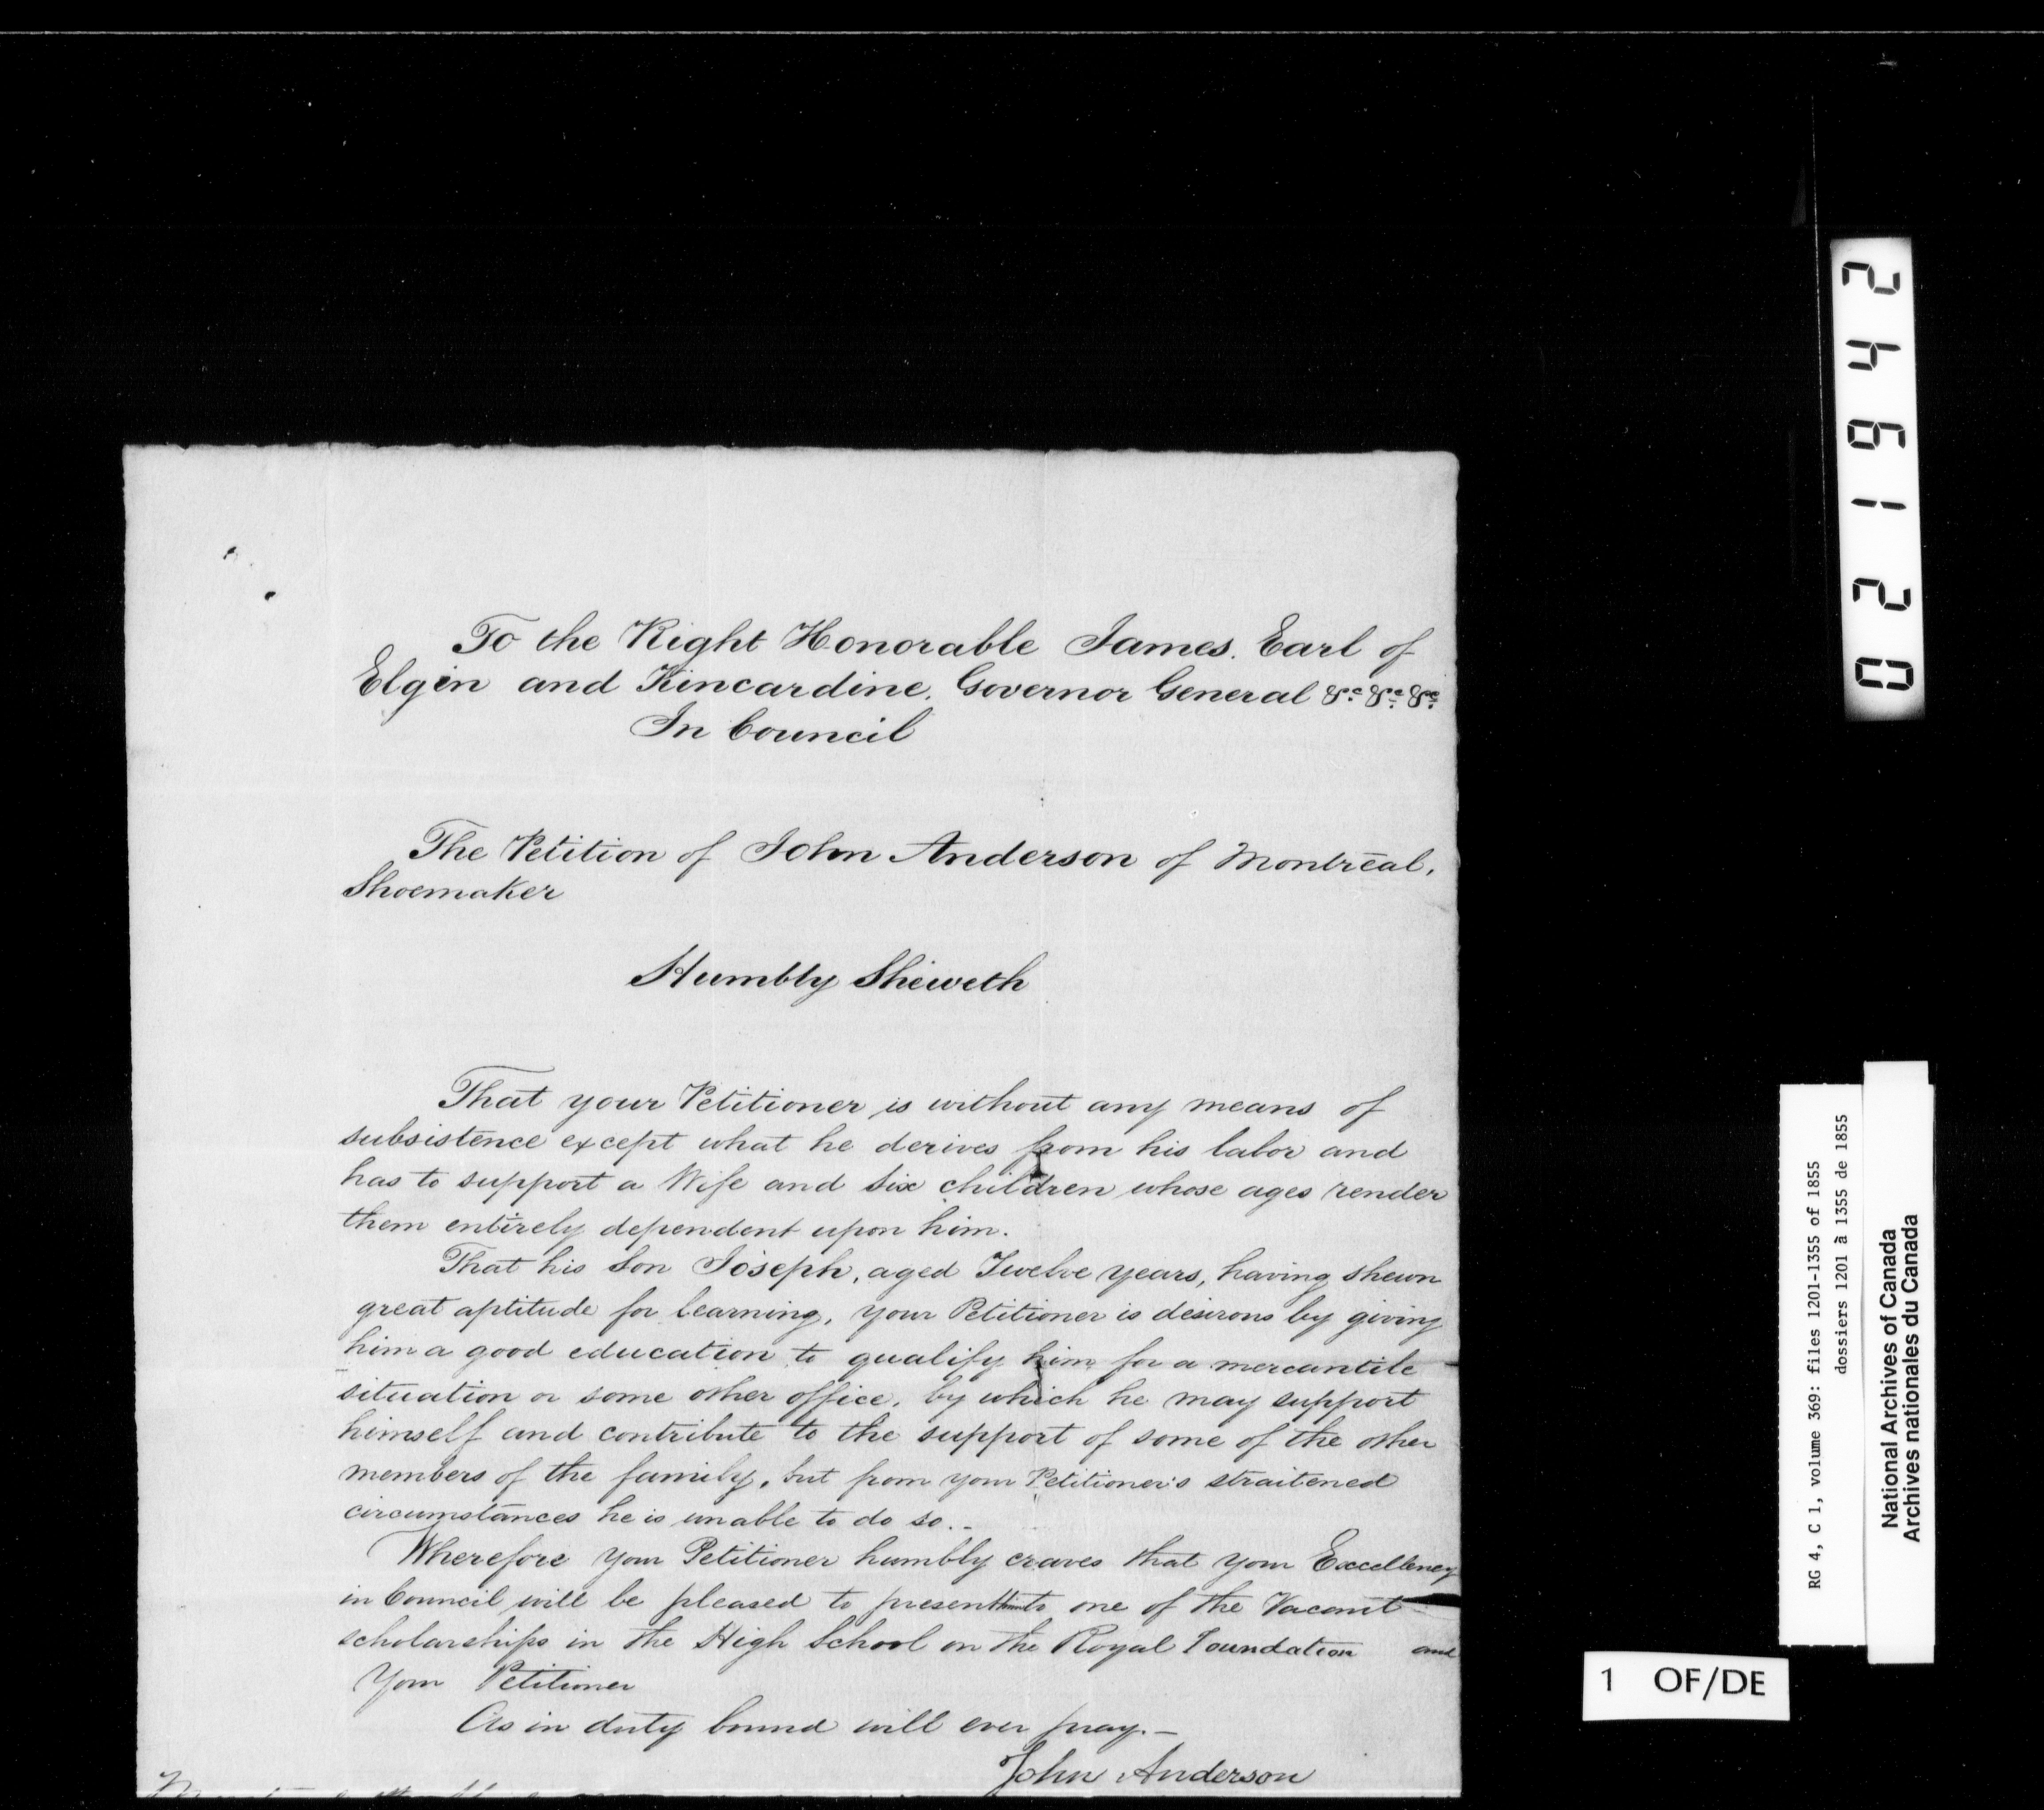 To the Right Honorable James. Earl of
Elgin and Kincardine. Governor General &c. &c. &c.
In Council
The Petition of John Anderson of Montreal,
Shoemaker
Humbly Sheweth
That your Petitioner is without any means of
subsistence except what he derives from his labor and
has to support a Wife and Six children whose ages render
them entirely dependent upon him.
That his Son Joseph, aged Twelve years, having shewn
great aptitude for learning, your Petitioner is desirous by giving
him a good education to qualify him for a mercantile
situation or some other office, by which he may support
himself and contribute to the support of some of the other
members of the family, but from your Petitioner's straitened
circumstances he is unable to do so.-
Wherefore your Petitioner humbly craves that your Excellency
in Council will be pleased to present him to one of the Vacant
scholarships in the High School on the Royal Foundation and
your Petitioner
As in duty bound will ever pray.-
John Anderson
021642
RG 4, C 1, volume 369: files 1201-1355 of 1855
dossiers 1201 à 1355 de 1855
National Archives of Canada
Archives nationales du Canada
1 OF/DE